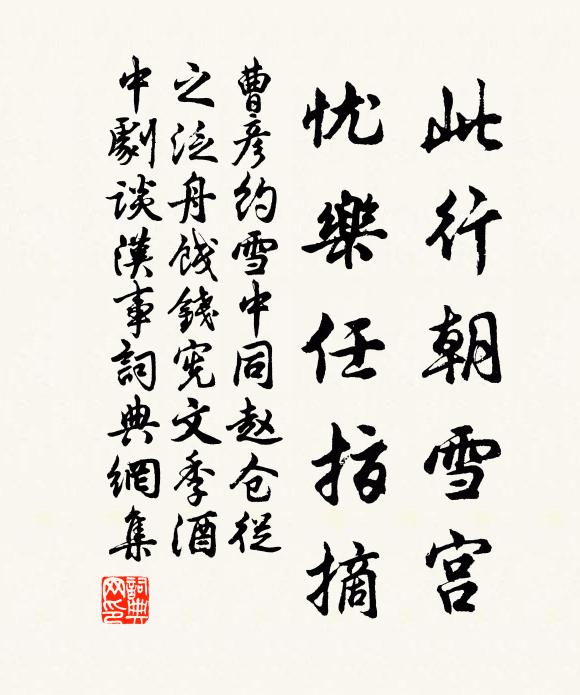 此行朝雪宫
忧樂任指摘
曹彦约雪中同赵仓從
之泛舟餞錢宪文季酒
中劇谈漢事詞典網集
詞典
网印